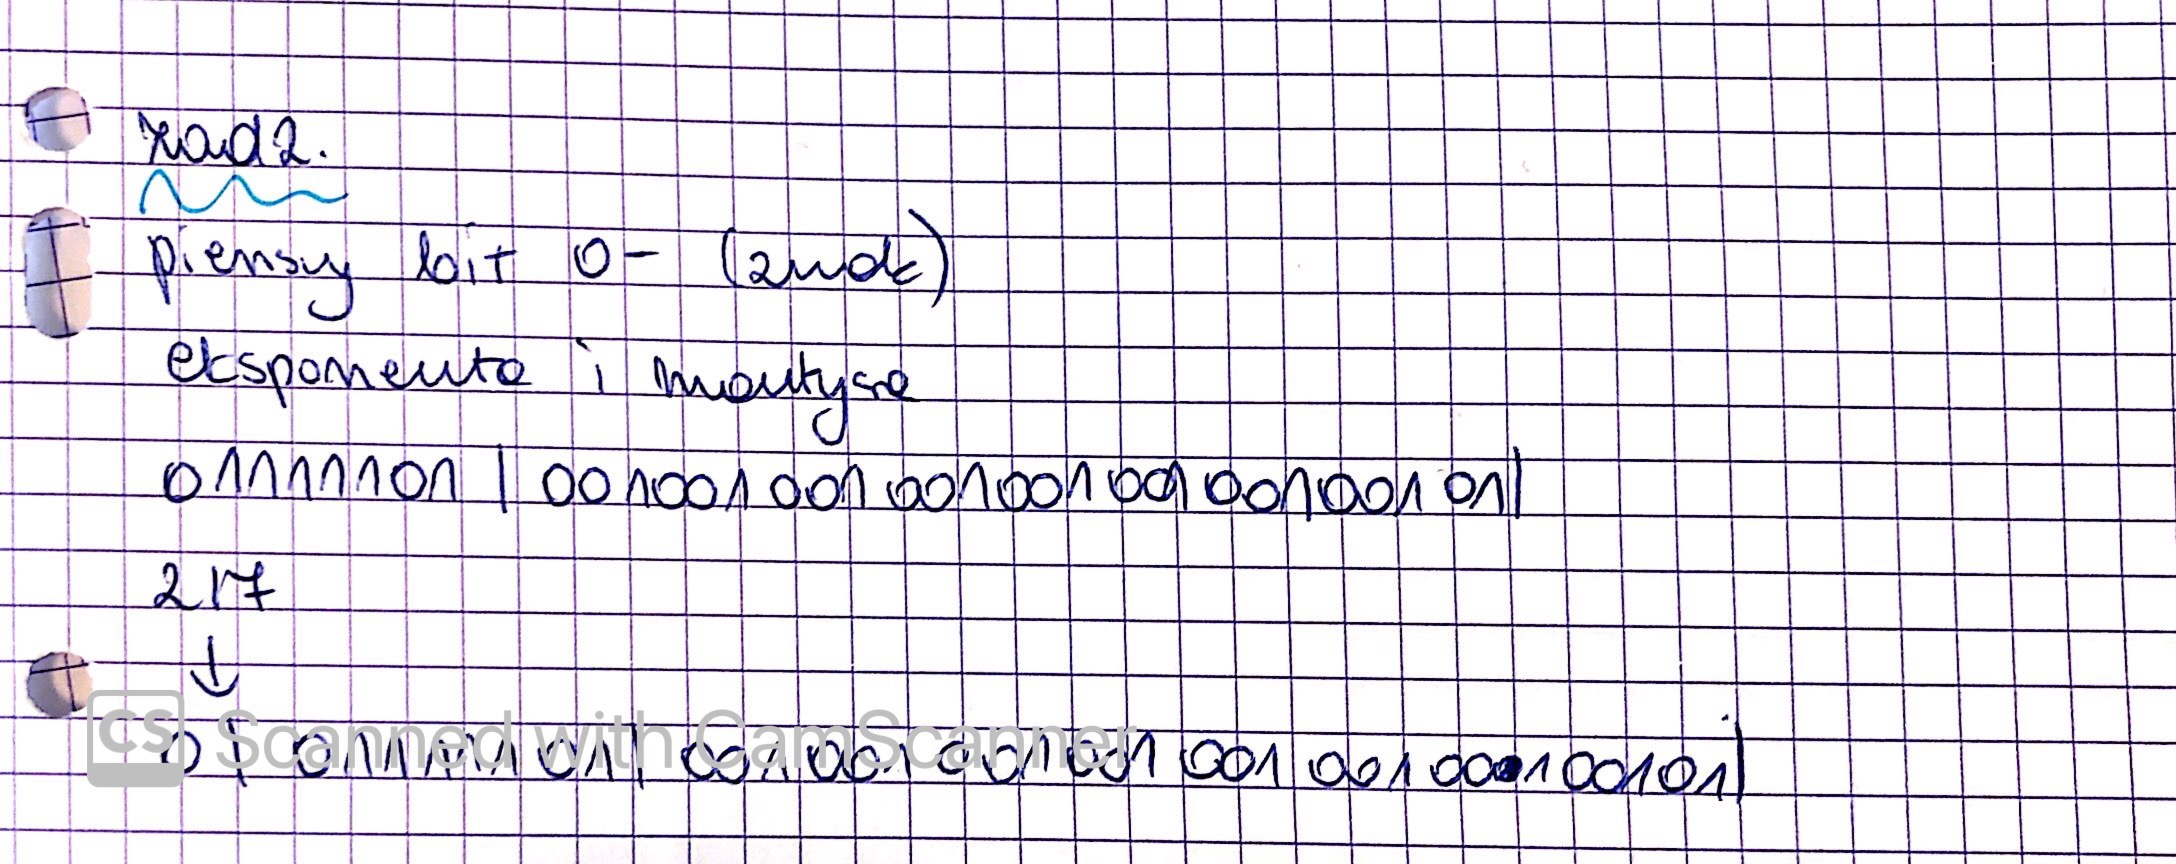 zad2.
pierwszy bit 0 - (znak)
eksponenta i mantysa
01111101 | 001001001001001001001001 01|
2/7
↓
0 | 01111101 | 00100100100100100100100101|
CS Scanned with CamScanner